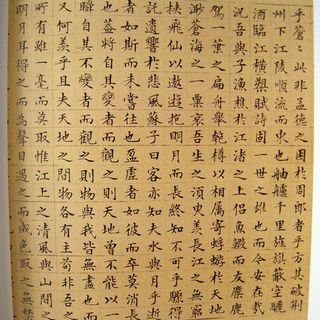 乎蒼〻此非孟德之困於周郎者乎方其破荊
州下江陵順流而東也舳艫千里旌旗蔽空釃
酒臨江橫槊賦詩固一世之雄也而今安在哉
況吾與子漁樵於江渚之上侶魚鰕而友麋鹿
駕一葉之扁舟舉匏樽以相屬寄蜉蝣於天地
渺蒼海之一粟哀吾生之須臾羨長江之無窮
挾飛仙以遨遊抱明月而長終知不可乎驟得
託遺響於悲風蘇子曰客亦知夫水與月乎逝
者如斯而未嘗往也盈虛者如彼而卒莫消長
也蓋將自其變者而觀之則天地曾不能以一
瞬自其不變者而觀之則物與我皆無盡也而
又何羨乎且夫天地之間物各有主苟非吾之
所有雖一毫而莫取惟江上之清風與山間之
明月耳得之而為聲目遇之而成色取之無禁